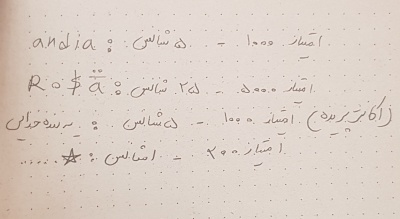 andia : ۵ شانس - ۱۰۰۰ امتیاز
Ro$ä : ۲۵ شانس - ۵۰۰۰ امتیاز
: ۵ شانس - ۱۰۰۰ امتیاز (اکانتر پریده)
..... ☆ : ۱ شانس - ۲۰۰ امتیاز